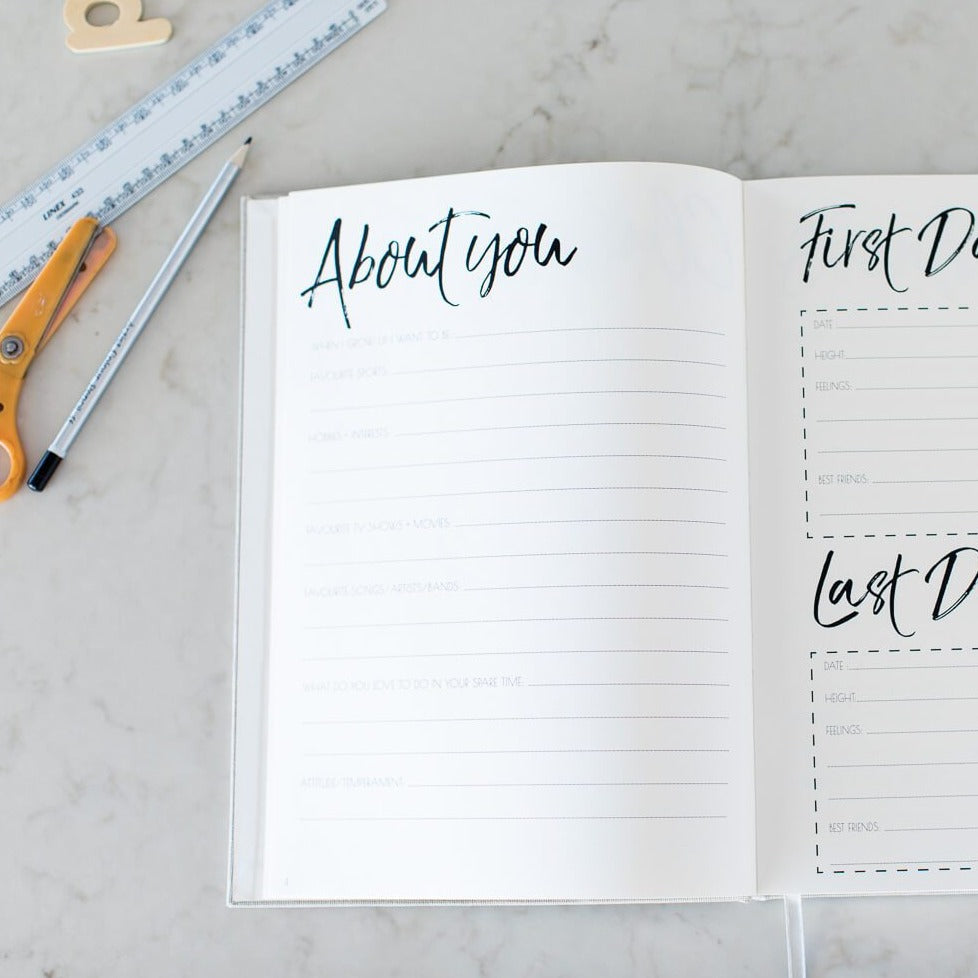 LINEX 433
About you
WHEN I GROW UP I WANT TO BE:
FAVOURITE SPORTS:
HOBBIES + INTERESTS:
FAVOURITE TV SHOWS + MOVIES:
FAVOURITE SONGS/ARTISTS/BANDS:
WHAT DO YOU LOVE TO DO IN YOUR SPARE TIME:
ATTITUDE/TEMPERAMENT:
First D
DATE
HEIGHT
FEELINGS:
BEST FRIENDS:
Last D
DATE
HEIGHT
FEELINGS:
BEST FRIENDS: